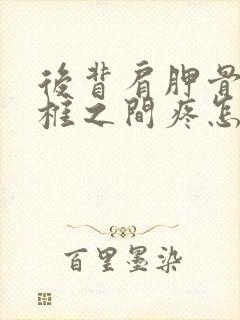 後背肩胛骨
椎之間疼怎
百里墨染